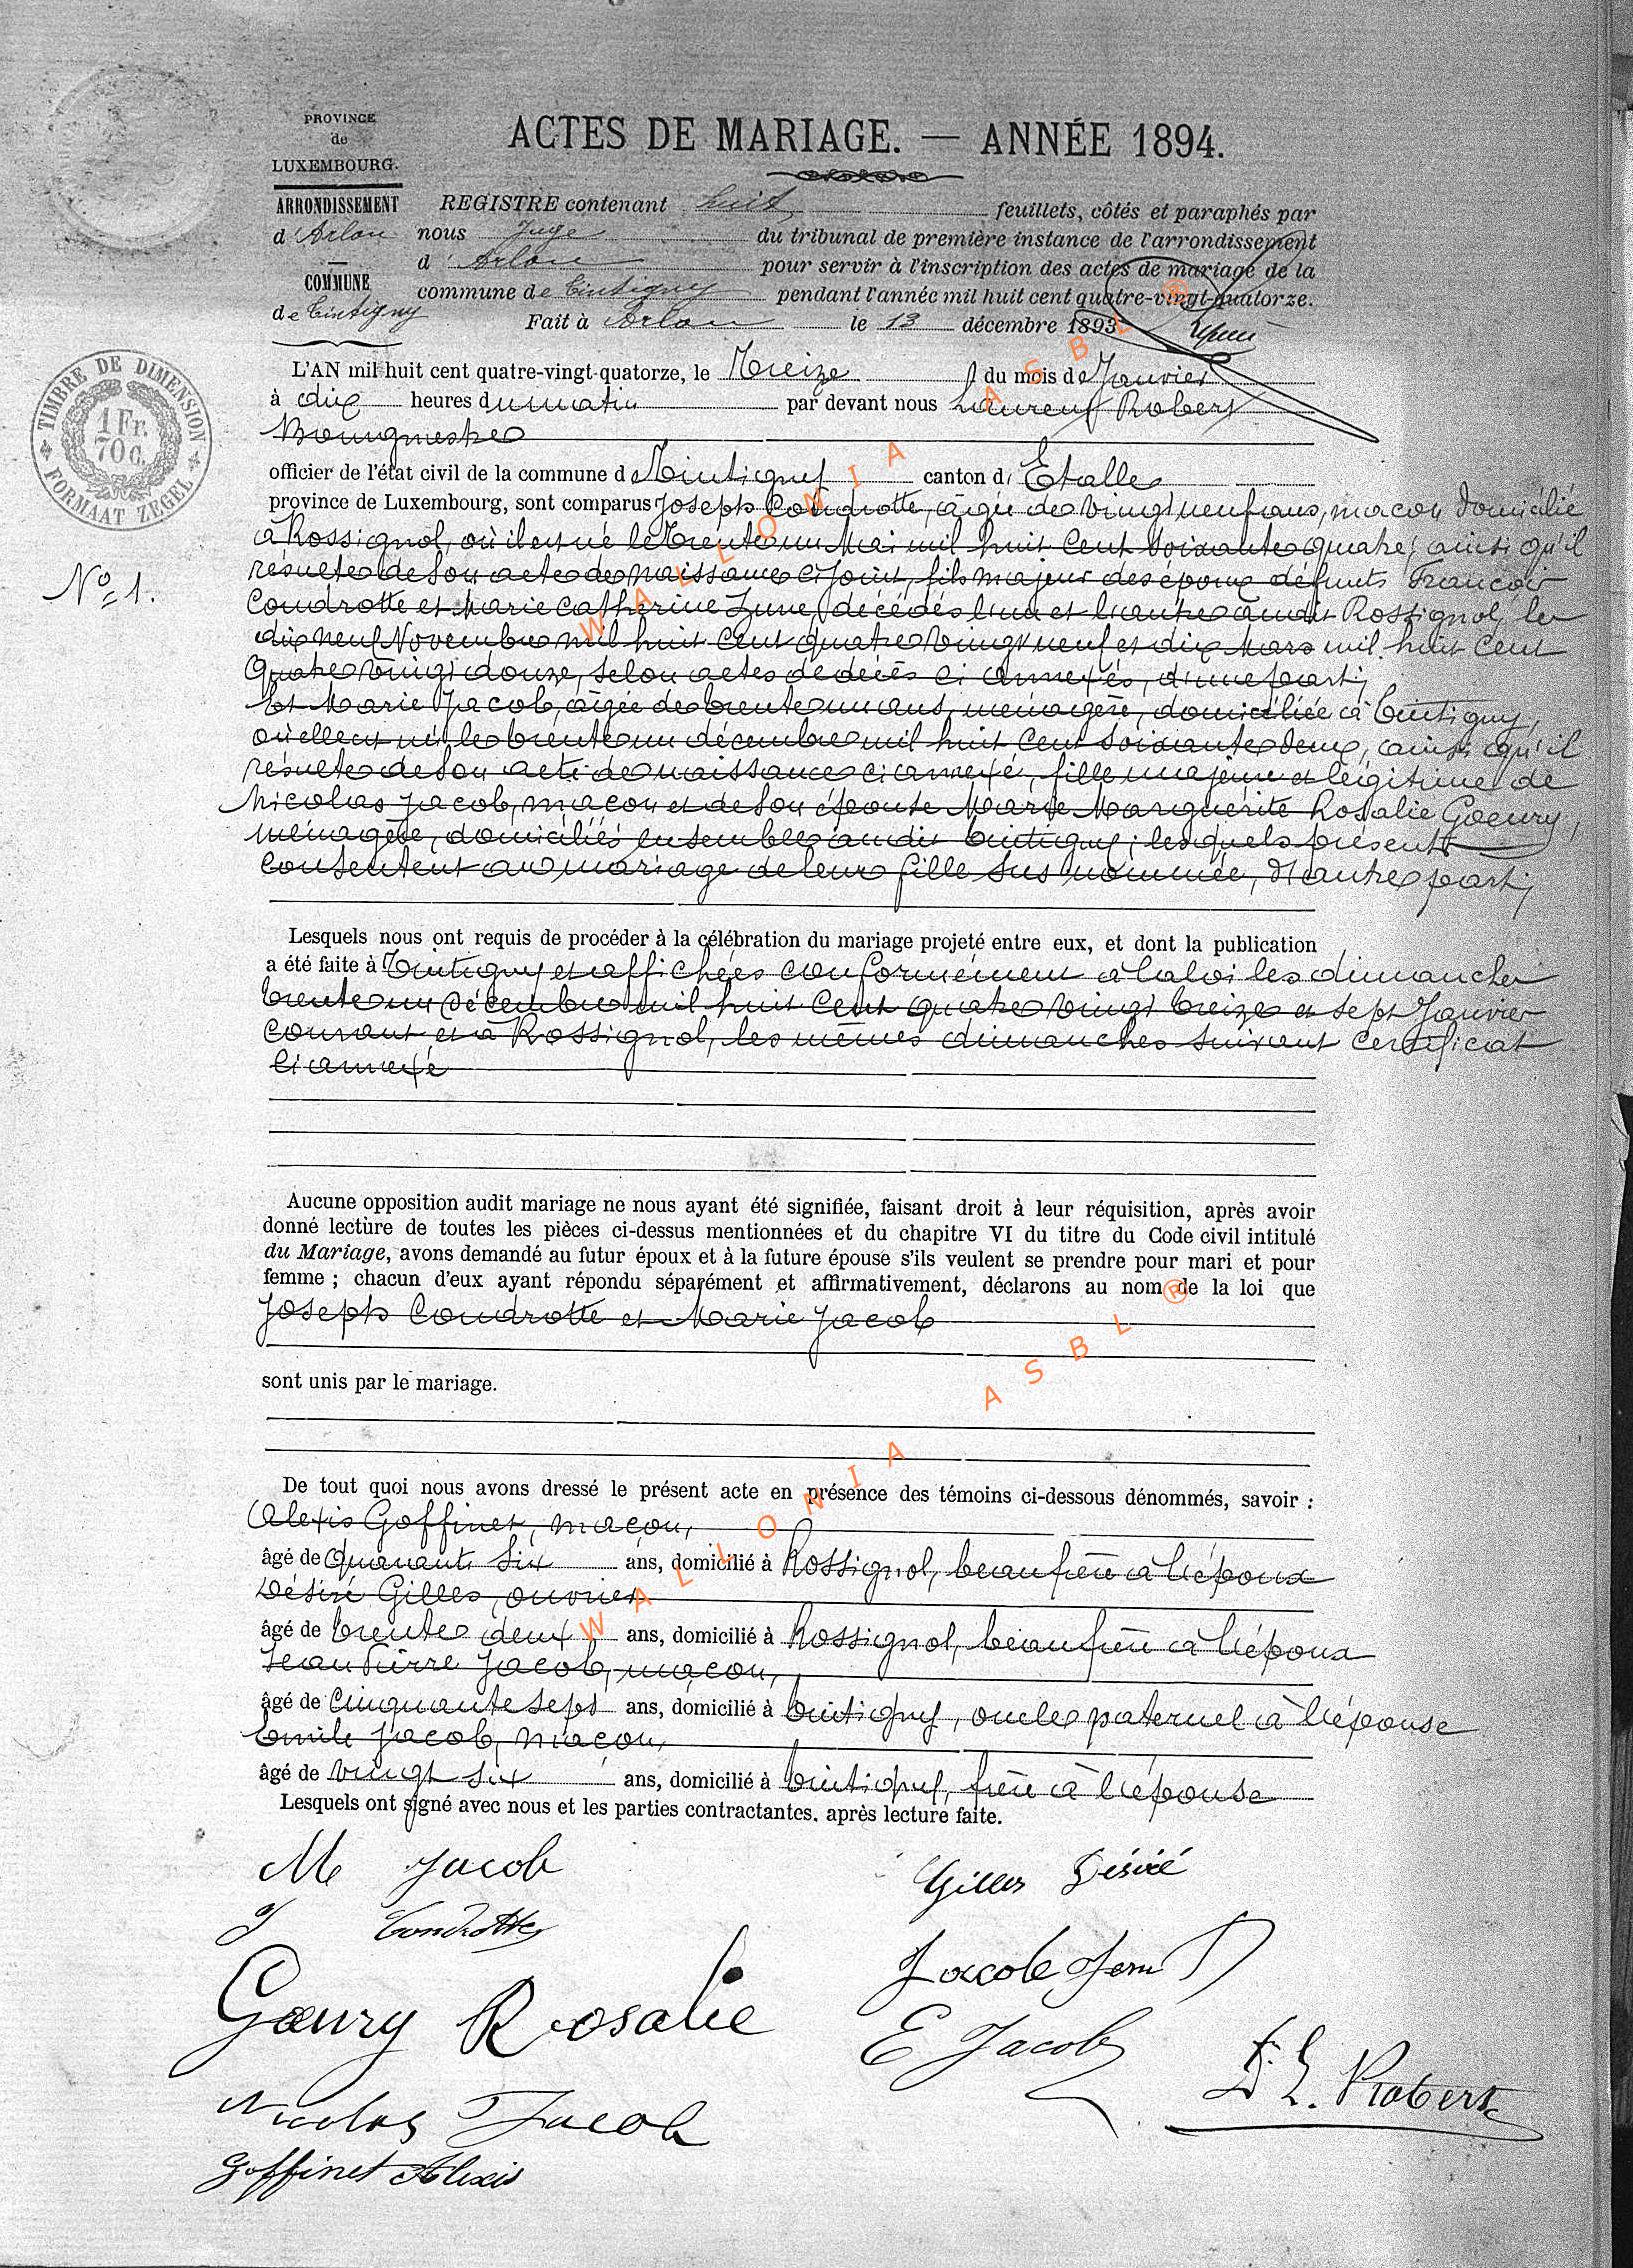 PROVINCE
de
LUXEMBOURG.
ARRONDISSEMENT
d'Arlon
COMMUNE
de Tintigny
ACTES DE MARIAGE. — ANNÉE 1894.
REGISTRE contenant huit feuillets, côtés et paraphés par
nous Juge du tribunal de première instance de l'arrondissement
d'Arlon pour servir à l'inscription des actes de mariage de la
commune de Tintigny pendant l'année mil huit cent quatre-vingt-quatorze.
Fait à Arlon le 13 décembre 1893
TIMBRE DE DIMENSION
1 Fr.
70 C.
FORMAAT ZEGEL
L'AN mil huit cent quatre-vingt-quatorze, le Treize du mois de Janvier
à dix heures du matin par devant nous Laurent Robert
Bourgmestre
officier de l'état civil de la commune de Tintigny canton d'Etalle
province de Luxembourg, sont comparus Joseph Condrotte, âgée de vingt neuf ans, maçon domicilié
No 1.
à Rossignol, où il est né le trente un Mai mil huit Cent Soixante quatre, ainsi qu'il
résulte de son acte de naissance ci joint, fils majeur des époux défunts François
Condrotte et Marie Catherine Zune, décédés l'un et l'autre audit Rossignol, les
dix neuf Novembre mil huit Cent quatre vingt neuf et dix Mars mil huit Cent
Quatre vingt douze, selon actes de décès ci annexés, d'une part;
Et Marie Jacob, âgée de trente un ans, ménagère, domiciliée à Tintigny,
où elle est née le trente un décembre mil huit Cent Soixante deux, ainsi qu'il
résulte de son acte de naissance ci annexé, fille majeure et légitime de
Nicolas Jacob, maçon et de son épouse Marie Marguerite Rosalie Goeury,
ménagère, domiciliés ensemble audit Tintigny; lesquels présents
consentent au mariage de leur fille sus nommée, d'autre part;
Lesquels nous ont requis de procéder à la célébration du mariage projeté entre eux, et dont la publication
a été faite à Tintigny et affichées conformément à la loi les dimanches
trente un Décembre mil huit Cent quatre vingt treize et sept Janvier
courant et à Rossignol, les mêmes dimanches suivant Certificat
ci annexé
Aucune opposition audit mariage ne nous ayant été signifiée, faisant droit à leur réquisition, après avoir
donné lecture de toutes les pièces ci-dessus mentionnées et du chapitre VI du titre du Code civil intitulé
du Mariage, avons demandé au futur époux et à la future épouse s'ils veulent se prendre pour mari et pour
femme ; chacun d'eux ayant répondu séparément et affirmativement, déclarons au nom de la loi que
Joseph Condrotte et Marie Jacob
sont unis par le mariage.
De tout quoi nous avons dressé le présent acte en présence des témoins ci-dessous dénommés, savoir :
Alexis Goffinet, maçon,
âgé de quarante six ans, domicilié à Rossignol, beau frère à l'époux
Désiré Gilles, ouvrier
âgé de trente deux ans, domicilié à Rossignol, beau frère à l'époux
Jean Pierre Jacob, maçon,
âgé de Cinquante sept ans, domicilié à Tintigny, oncle paternel à l'épouse
Emile Jacob, maçon,
âgé de vingt six ans, domicilié à Tintigny, frère à l'épouse
Lesquels ont signé avec nous et les parties contractantes, après lecture faite.
M Jacob
Gilles Désiré
J Condrotte
Jacob Jean P
Goeury Rosalie
E Jacob
L. Robert
Nicolas Jacob
Goffinet Alexis
WALLONIA ASBL ®
WALLONIA ASBL ®